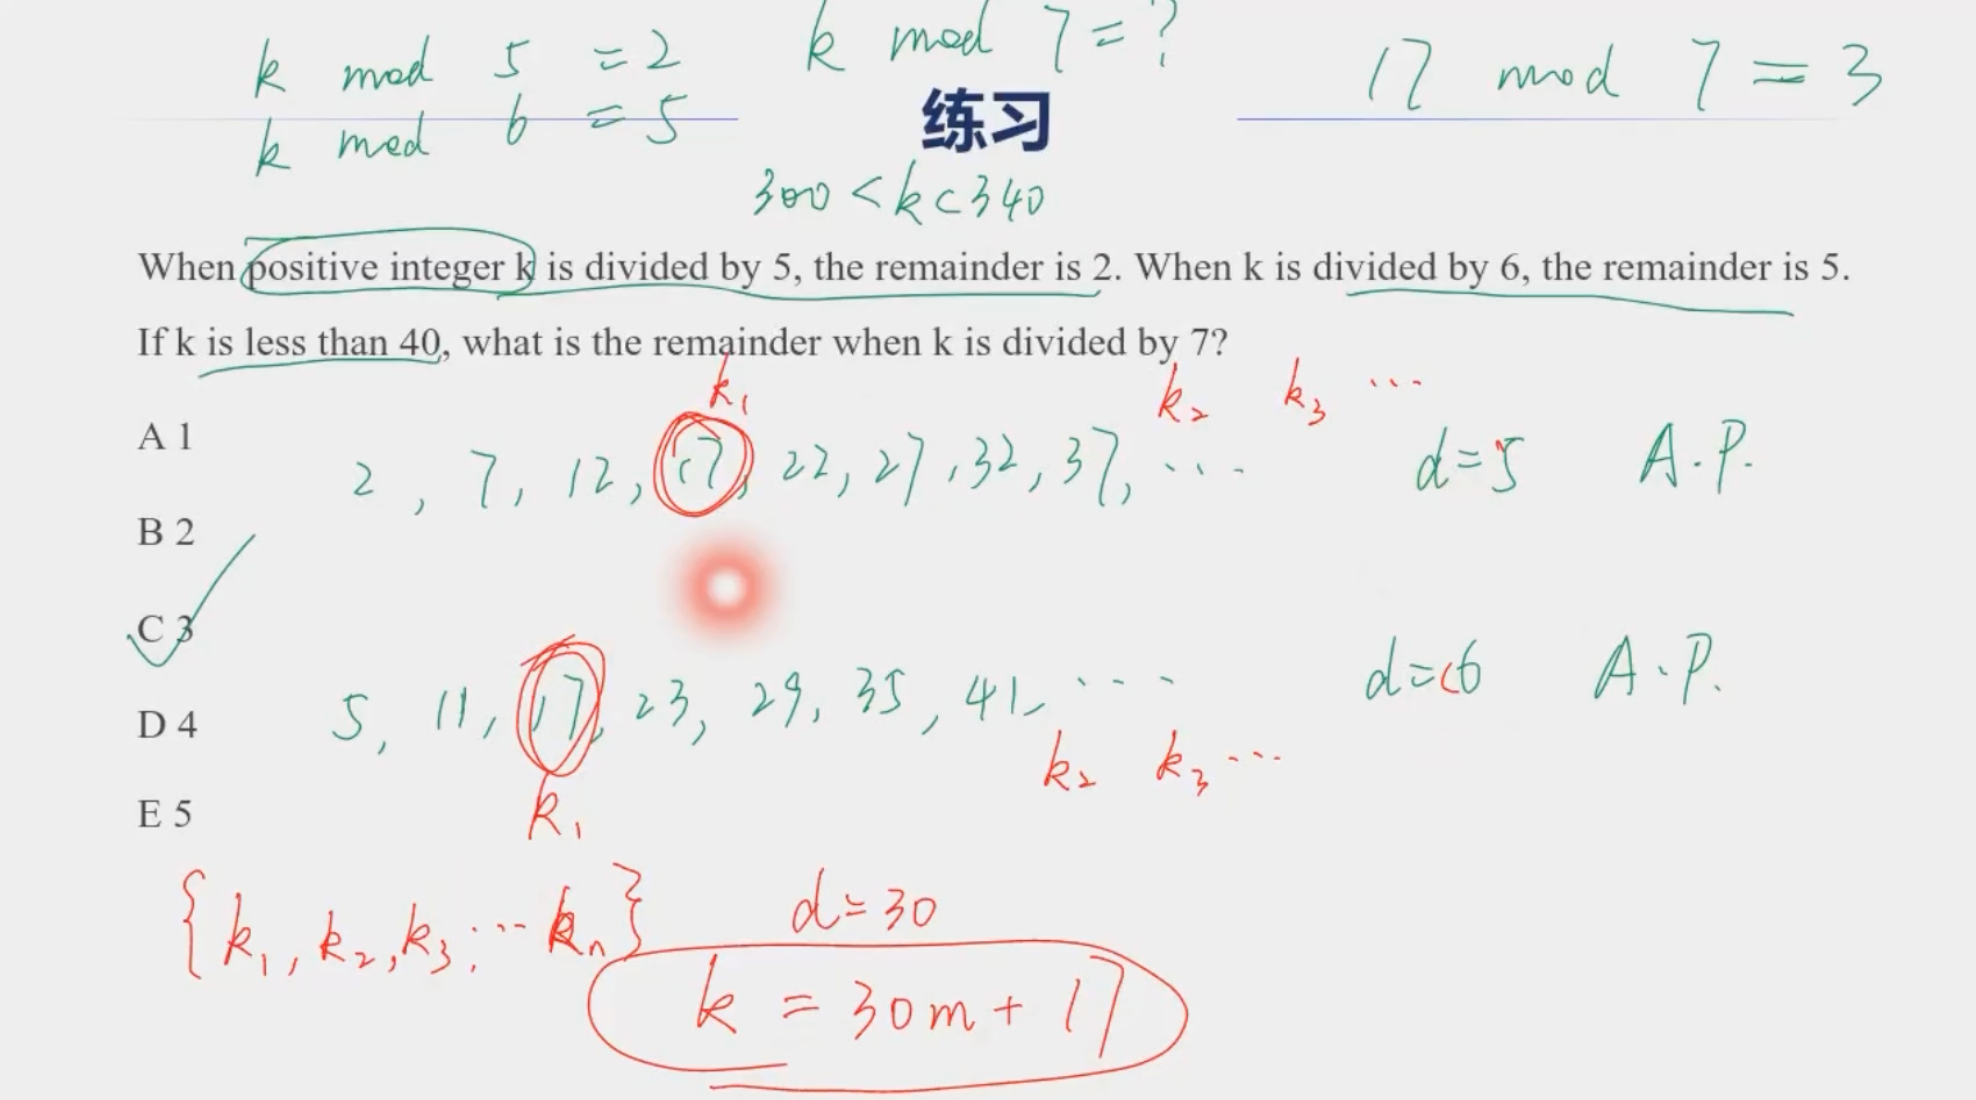 k mod 5 = 2
k mod 7 = ?
17 mod 7 = 3
k mod 6 = 5
练习
300 < k < 340
When positive integer k is divided by 5, the remainder is 2. When k is divided by 6, the remainder is 5.
If k is less than 40, what is the remainder when k is divided by 7?
k₁ k₂ k₃ ...
A 1
2, 7, 12, 17, 22, 27, 32, 37, ... d=5 A.P.
B 2
C 3
5, 11, 17, 23, 29, 35, 41, ... d=6 A.P.
D 4
k₁ k₂ k₃ ...
E 5
{k₁, k₂, k₃, ... kₙ} d=30
k = 30m + 17